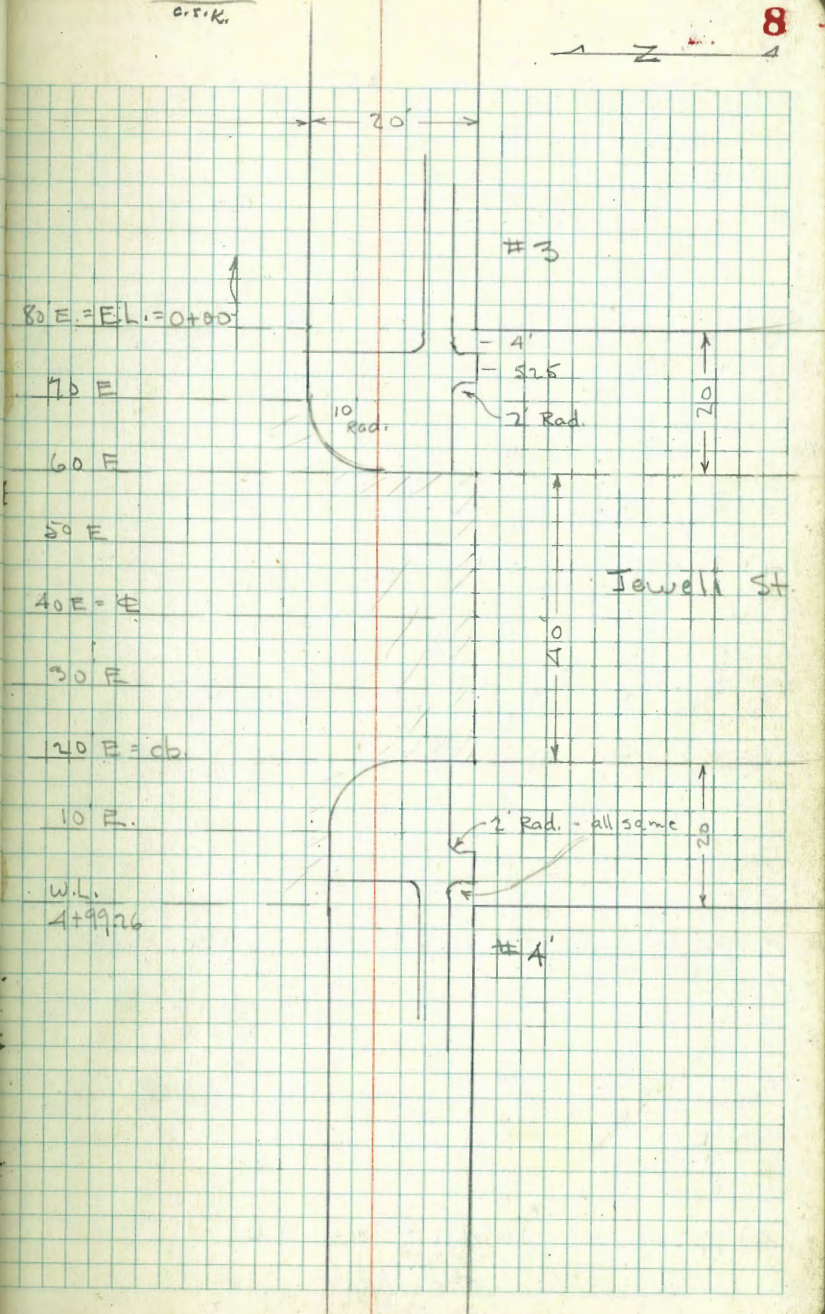 C.S.K.
8
N
20'
#3
80 E. = E.L. = 0+00
4'
70 E
525
10' Rad.
2' Rad.
20
60 E
50 E
Jewell St.
40 E = ℄
40'
30 E
20 E = cb.
10 E.
2' Rad. - all same
20
W.L.
4+99.26
#4